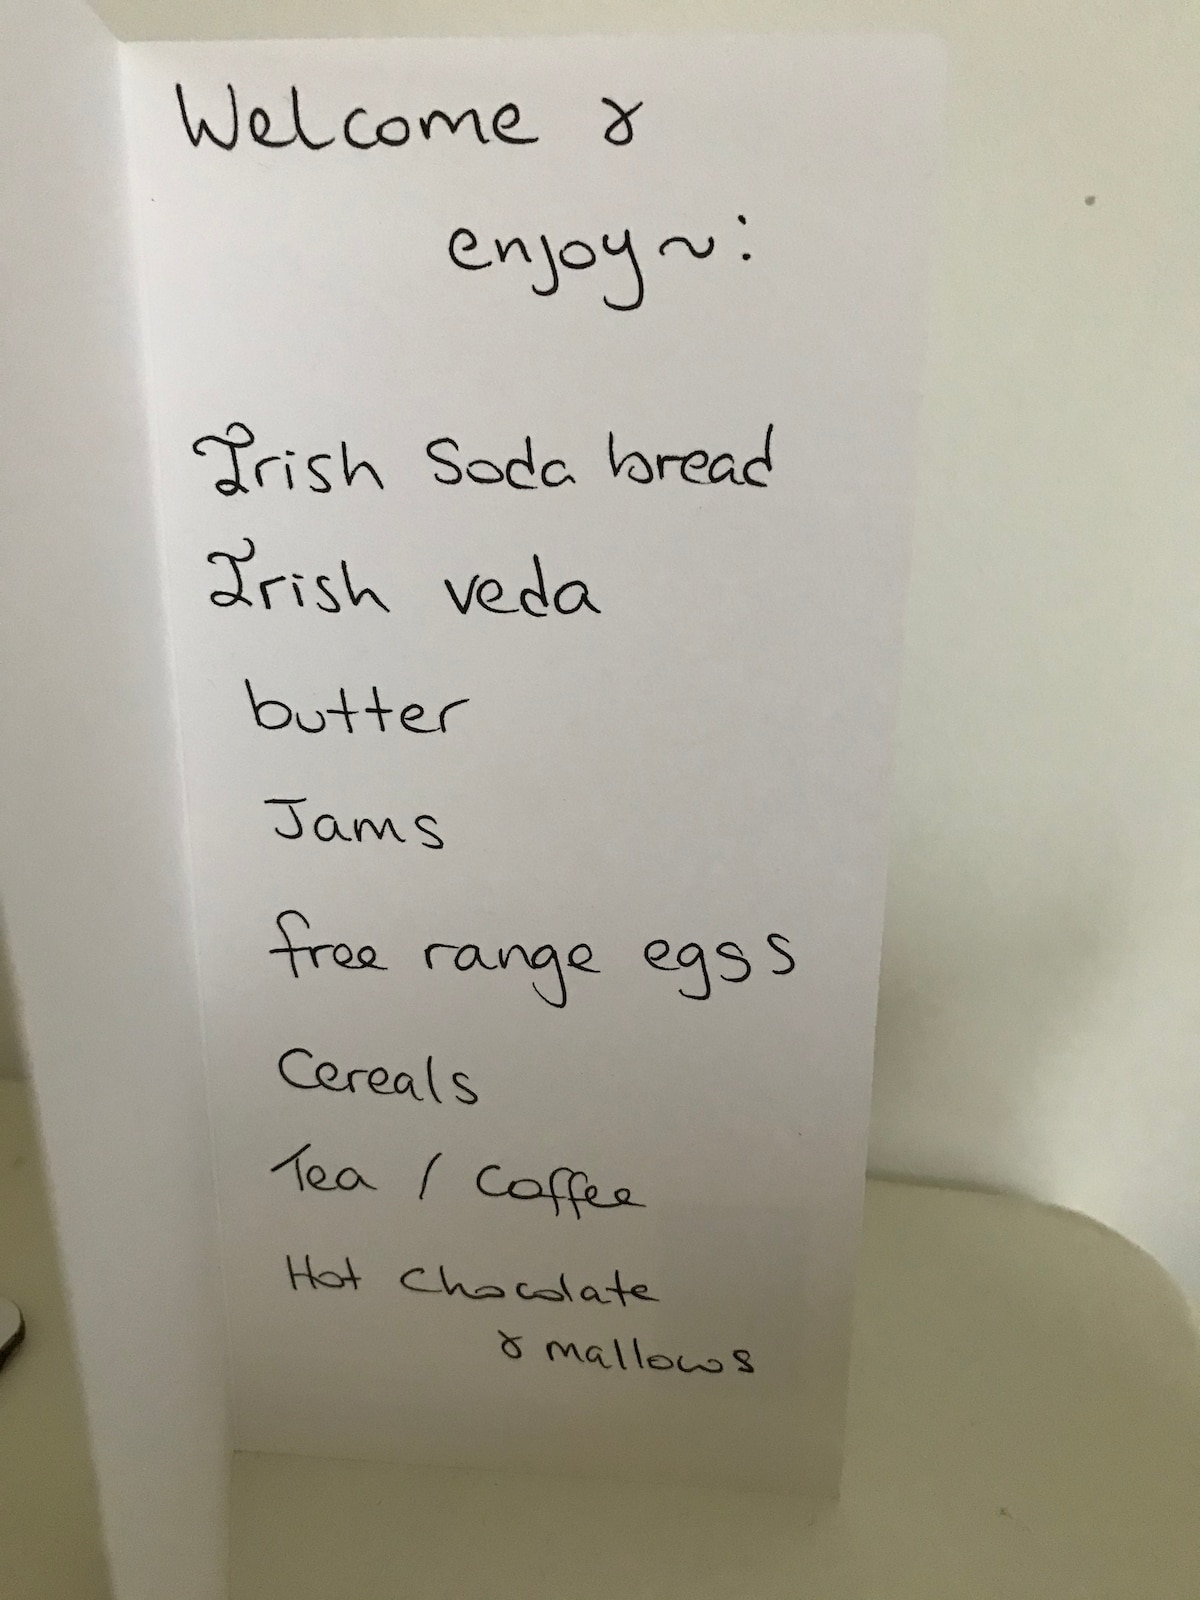 Welcome &
enjoy~:
Irish Soda bread
Irish veda
butter
Jams
free range eggs
Cereals
Tea / Coffee
Hot Chocolate
& mallows